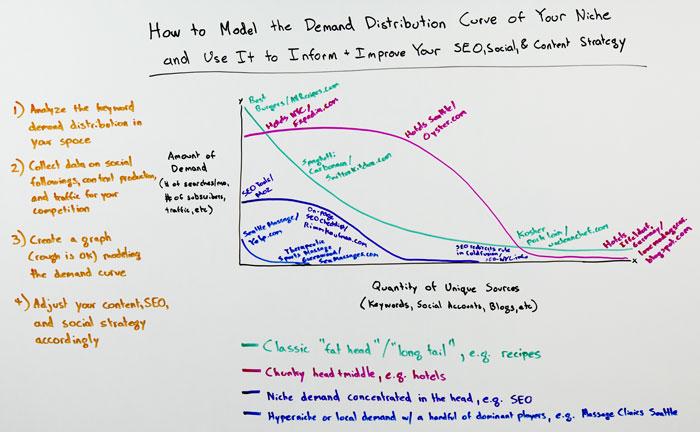 How to Model the Demand Distribution Curve of Your Niche
and Use It to Inform + Improve Your SEO, Social, & Content Strategy
1) Analyze the keyword
demand distribution in
your space
2) Collect data on social
followings, content production,
and traffic for your
competition
3) Create a graph
(rough is OK) modeling
the demand curve
4) Adjust your content, SEO,
and social strategy
accordingly
Amount of
Demand
(# of searches/mo,
# of subscribers,
traffic, etc)
Y
Best
Burgers/AllRecipes.com
Hotels NYC/
Expedia.com
Hotels Seattle/
Oyster.com
Spaghetti
Carbonara/
SimmerKitchen.com
SEO Tools/Moz
On-page
SEO Checkup/
RimmKaufman.com
Seattle Massage/
Yelp.com
Therapeutic
Sports Massage
SeaMassages.com
SEO redirects rule
in Coldfusion/
Kosher
Pork Loin/
Hotels
Germany/
blogspot.com
X
Quantity of Unique Sources
(Keywords, Social Accounts, Blogs, etc)
Classic "fat head"/"long tail", e.g. recipes
Chunky head+middle, e.g. hotels
Niche demand concentrated in the head, e.g. SEO
Hyperniche or local demand w/ a handful of dominant players, e.g. Massage Clinics Seattle